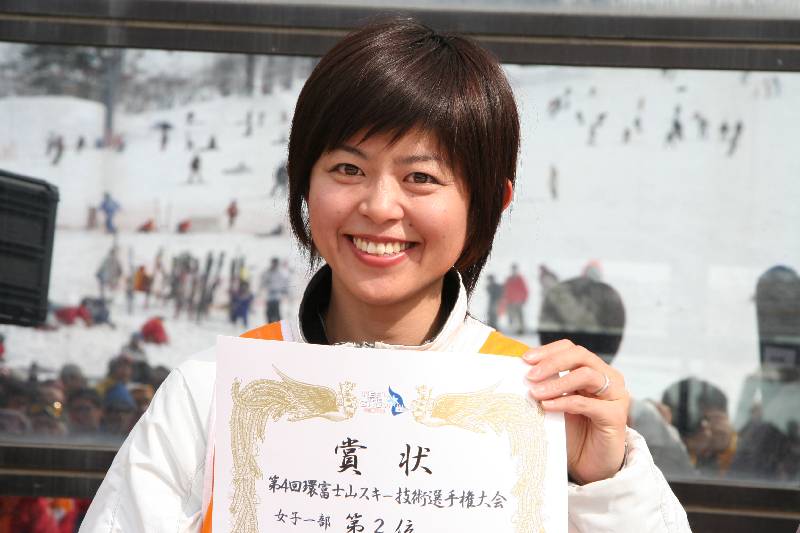 賞状
第4回環富士山スキー技術選手権大会
女子一部 第2位